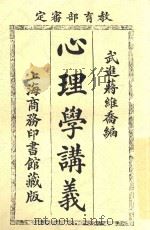 教育部審定
武進蔣維喬編
心理學講義
上海商務印書館藏版